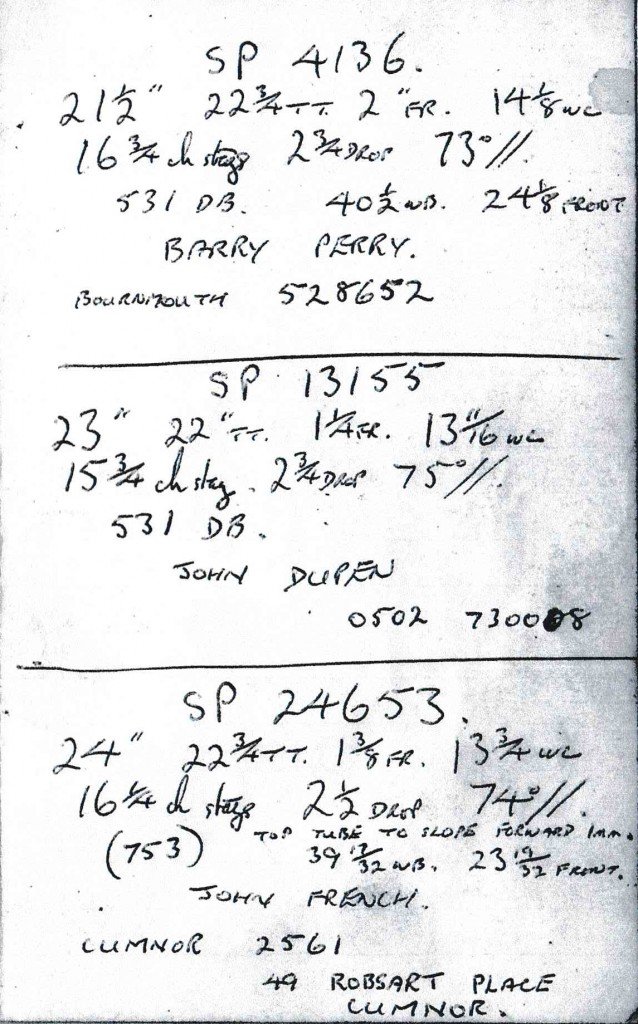 SP 4136.
21 1/2" 22 3/4 TT. 2" FR. 14 1/8 WC
16 3/4 ch stays 2 3/4 DROP 73° //.
531 DB. 40 1/2 WB. 24 1/8 FRONT
BARRY PERRY.
BOURNMOUTH 528652
SP 13155
23" 22" TT. 1 1/4 FR. 13 11/16 WC
15 3/4 ch stay. 2 3/4 DROP 75° //.
531 DB.
JOHN DUPEN
0502 730008
SP 24653.
24" 22 3/4 TT. 1 3/8 FR. 13 3/4 WC
16 1/4 ch stays 2 1/2 DROP 74° //.
TOP TUBE TO SLOPE FORWARD 1MM.
(753) 39 WB. 23 19/32 FRONT.
JOHN FRENCH.
CUMNOR 2561
49 ROBSART PLACE
CUMNOR.